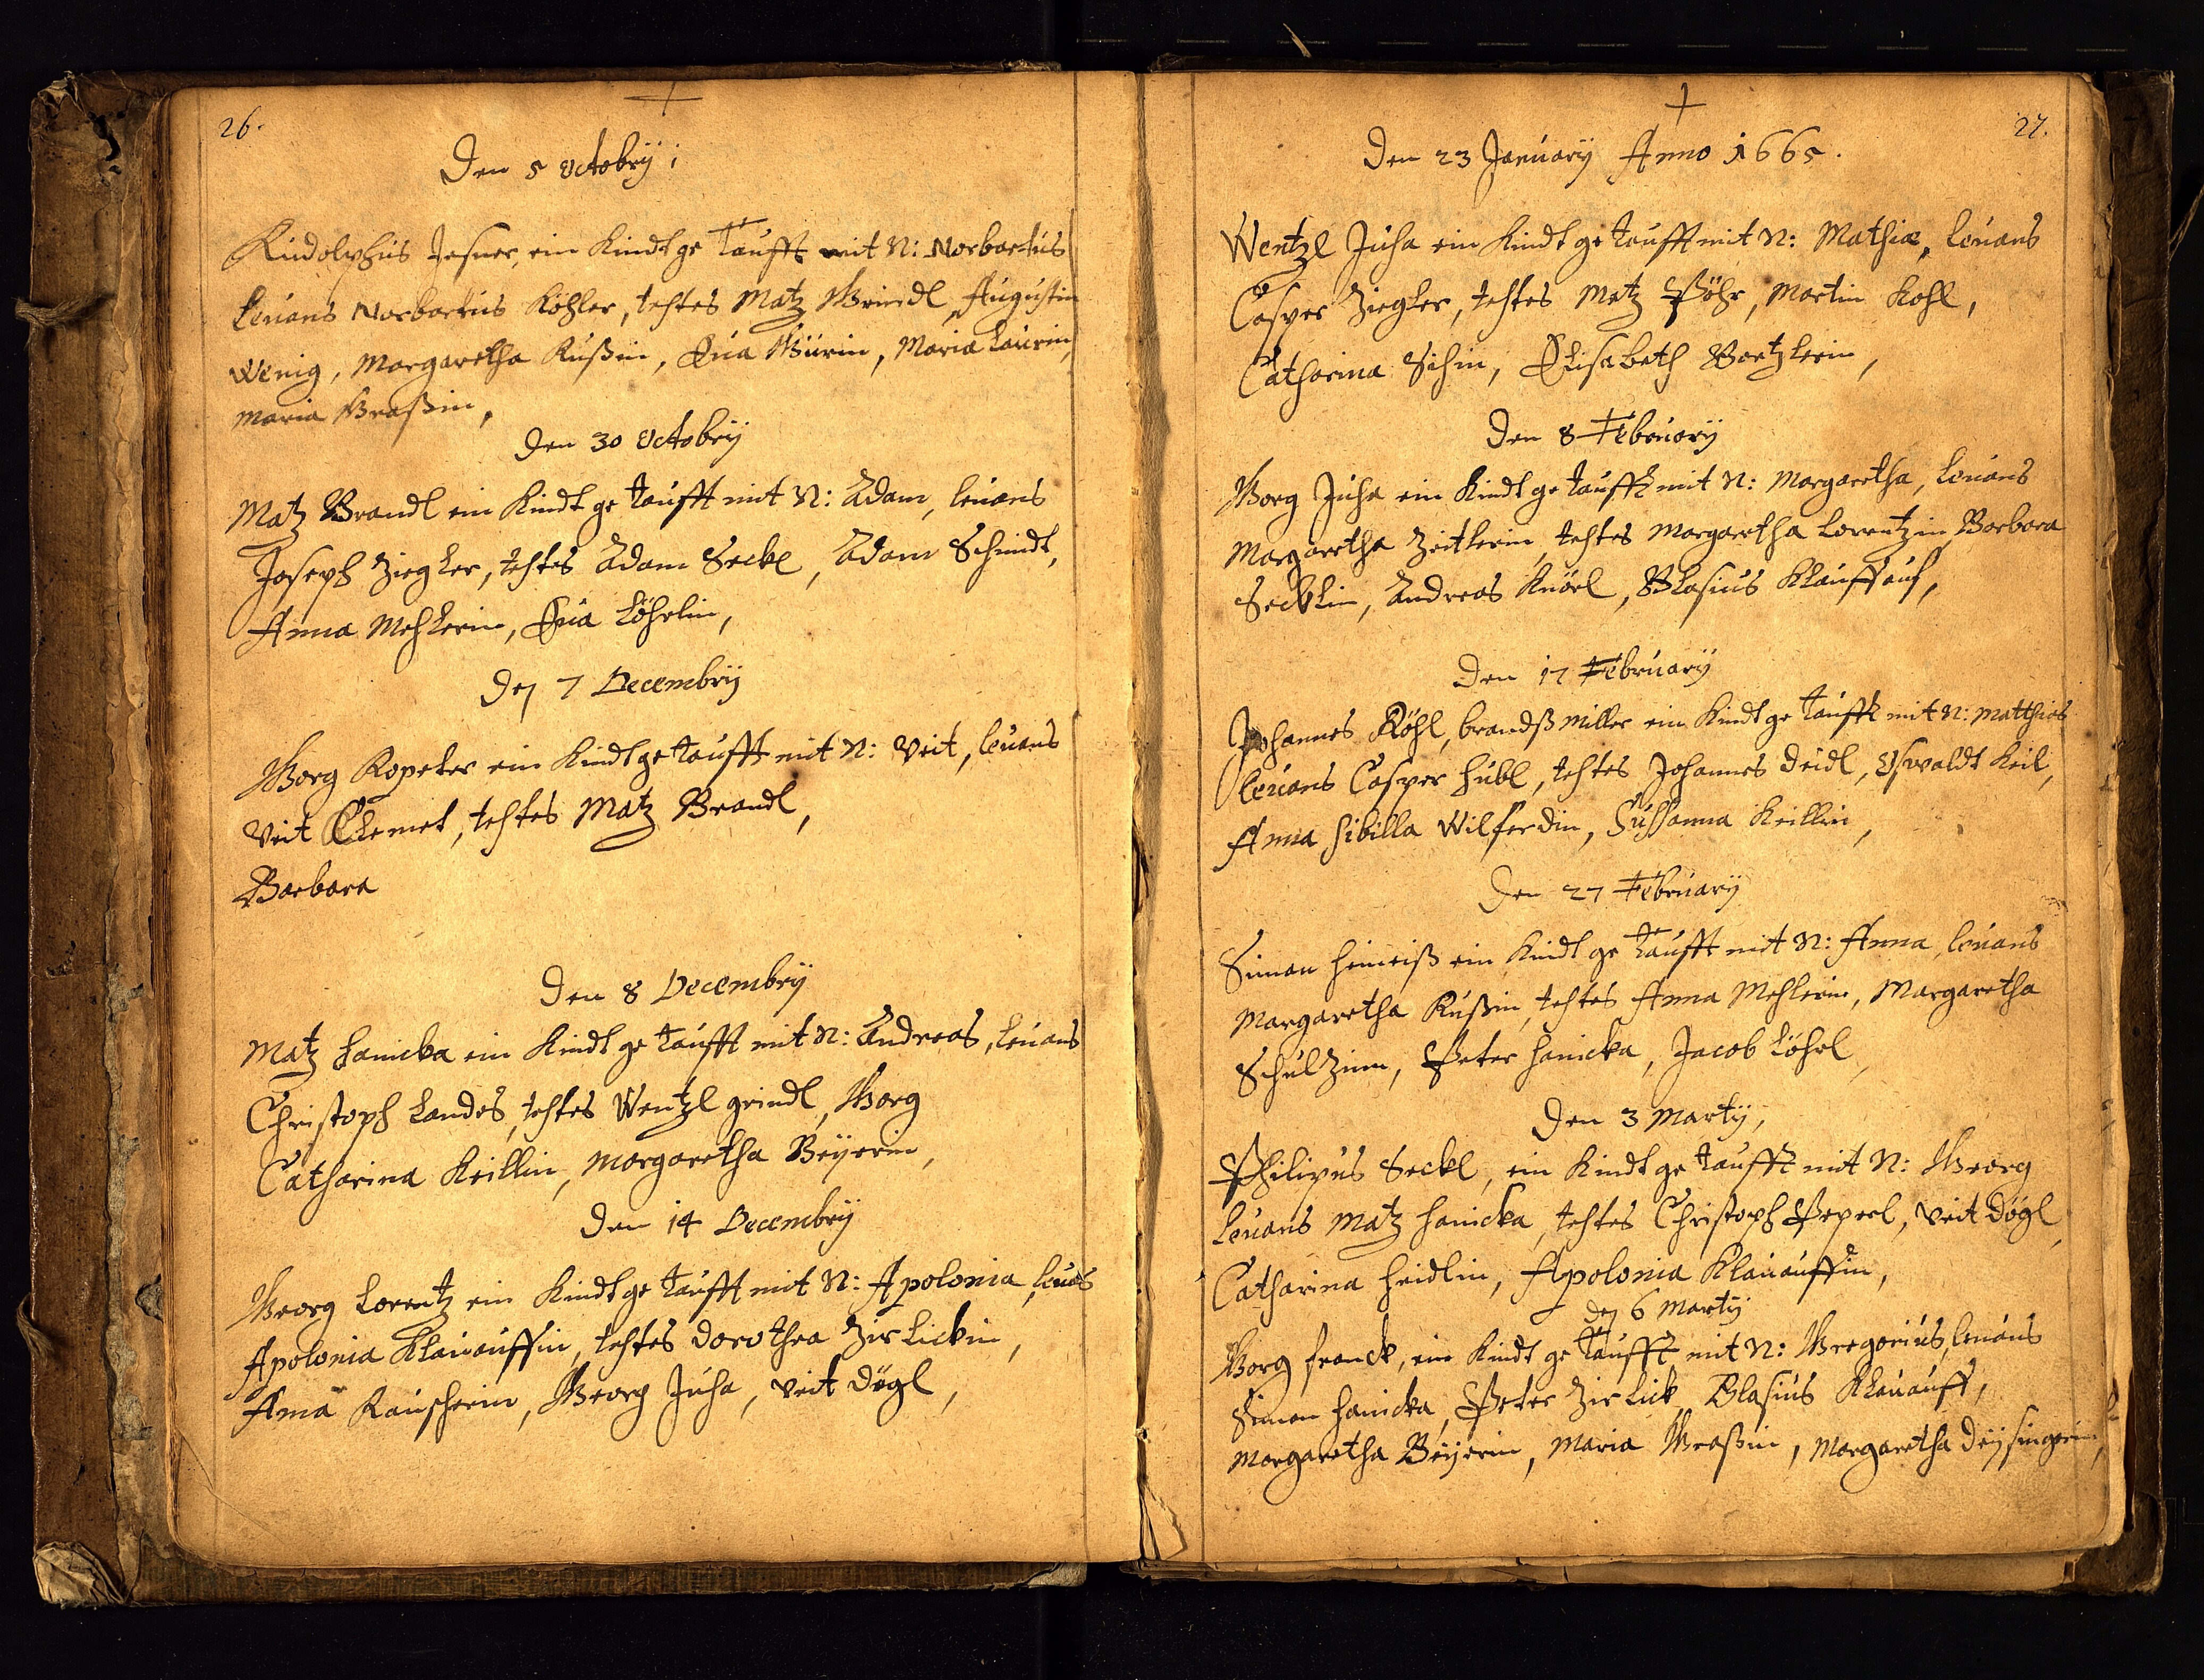 26.
Den 5 Octobrÿ;
Rudolphus Jesner, ein Kindt getaufft mit N: Norbartus
Leuans Norbartus Köhler, testes Matz Grindl, Augustin
Wenig, Margaretha Rußin, Eua Gürin, Maria Laurin,
Maria Graßin,
Den 30 Octobrÿ
Matz Brandl ein Kindt getaufft mit N: Adam, leuans
Joseph Ziegler, testes Adam Seckl, Adam Schmidt,
Anna Mehlerin, Eua Löhrlin,
Den 7 Decembrÿ
Georg Kopeter ein Kindt getaufft mit N: Veit, leuans
Veit Clemet, testes Matz Brandl,
Barbara
Den 8 Decembrÿ
Matz Hanicka ein Kindt getaufft mit N: Andreas, leuans
Christoph Landes, testes Wentzl Grindl, Georg
Catharina Keillin, Margaretha Beÿerin,
Den 14 Decembrÿ
Georg Lorentz ein Kindt getaufft mit N: Apolonia, leuãs
Apolonia Klauauffin, testes Dorothea Zirlickin,
Anna Rauscherin, Georg Juha, Veit Dögl,
27.
Den 23 Januarÿ Anno 1665.
Wentzl Juha ein Kindt getaufft mit N: Mathiæ, leuans
Casper Ziegler, testes Matz Pöhr, Martin Kohl,
Catharina Sihin, Elisabeth Bartzlerin,
Den 8 Februarÿ
Georg Juha ein Kindt getaufft mit N: Margaretha, leuans
Margaretha Zeitlerin, testes Margaretha Lorentzin, Barbara
Secklin, Andreas Knörl, Blasius Klauffauf,
Den 17 Februarÿ
Johannes Köhl, brandßmiller ein Kindt getaufft mit N: Matthias
Leuans Casper Hübl, testes Johannes Deidl, Oswaldt Keil,
Anna Sibilla Wilferdin, Sussanna Keillin,
Den 27 Februarÿ
Simon Heineiß ein Kindt getaufft mit N: Anna, leuans
Margaretha Rußin, testes Anna Mehlerin, Margaretha
Schulzinn, Peter Hanicka, Jacob Löhrl,
Den 3 Martÿ,
Philipus Seckl, ein Kindt getaufft mit N: Georg
Leuans Matz Hanicka, testes Christoph Peperl, Veit Dögl,
Catharina Heidlin, Apolonia Klauauffin,
Den 6 Martÿ
Georg Franck, ein Kindt getaufft mit N: Gregorius, leuans
Simon Hanicka, Peter Zirlick, Blasius Klauauff,
Margaretha Beÿerin, Maria Graßin, Margaretha Deÿsingerin,